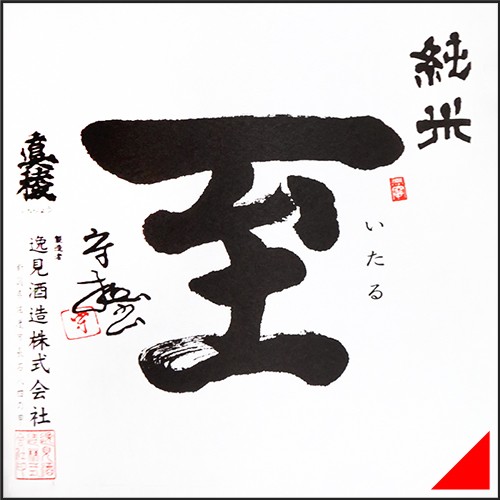 純米
至
いたる
真稜
製造者
逸見酒造株式会社